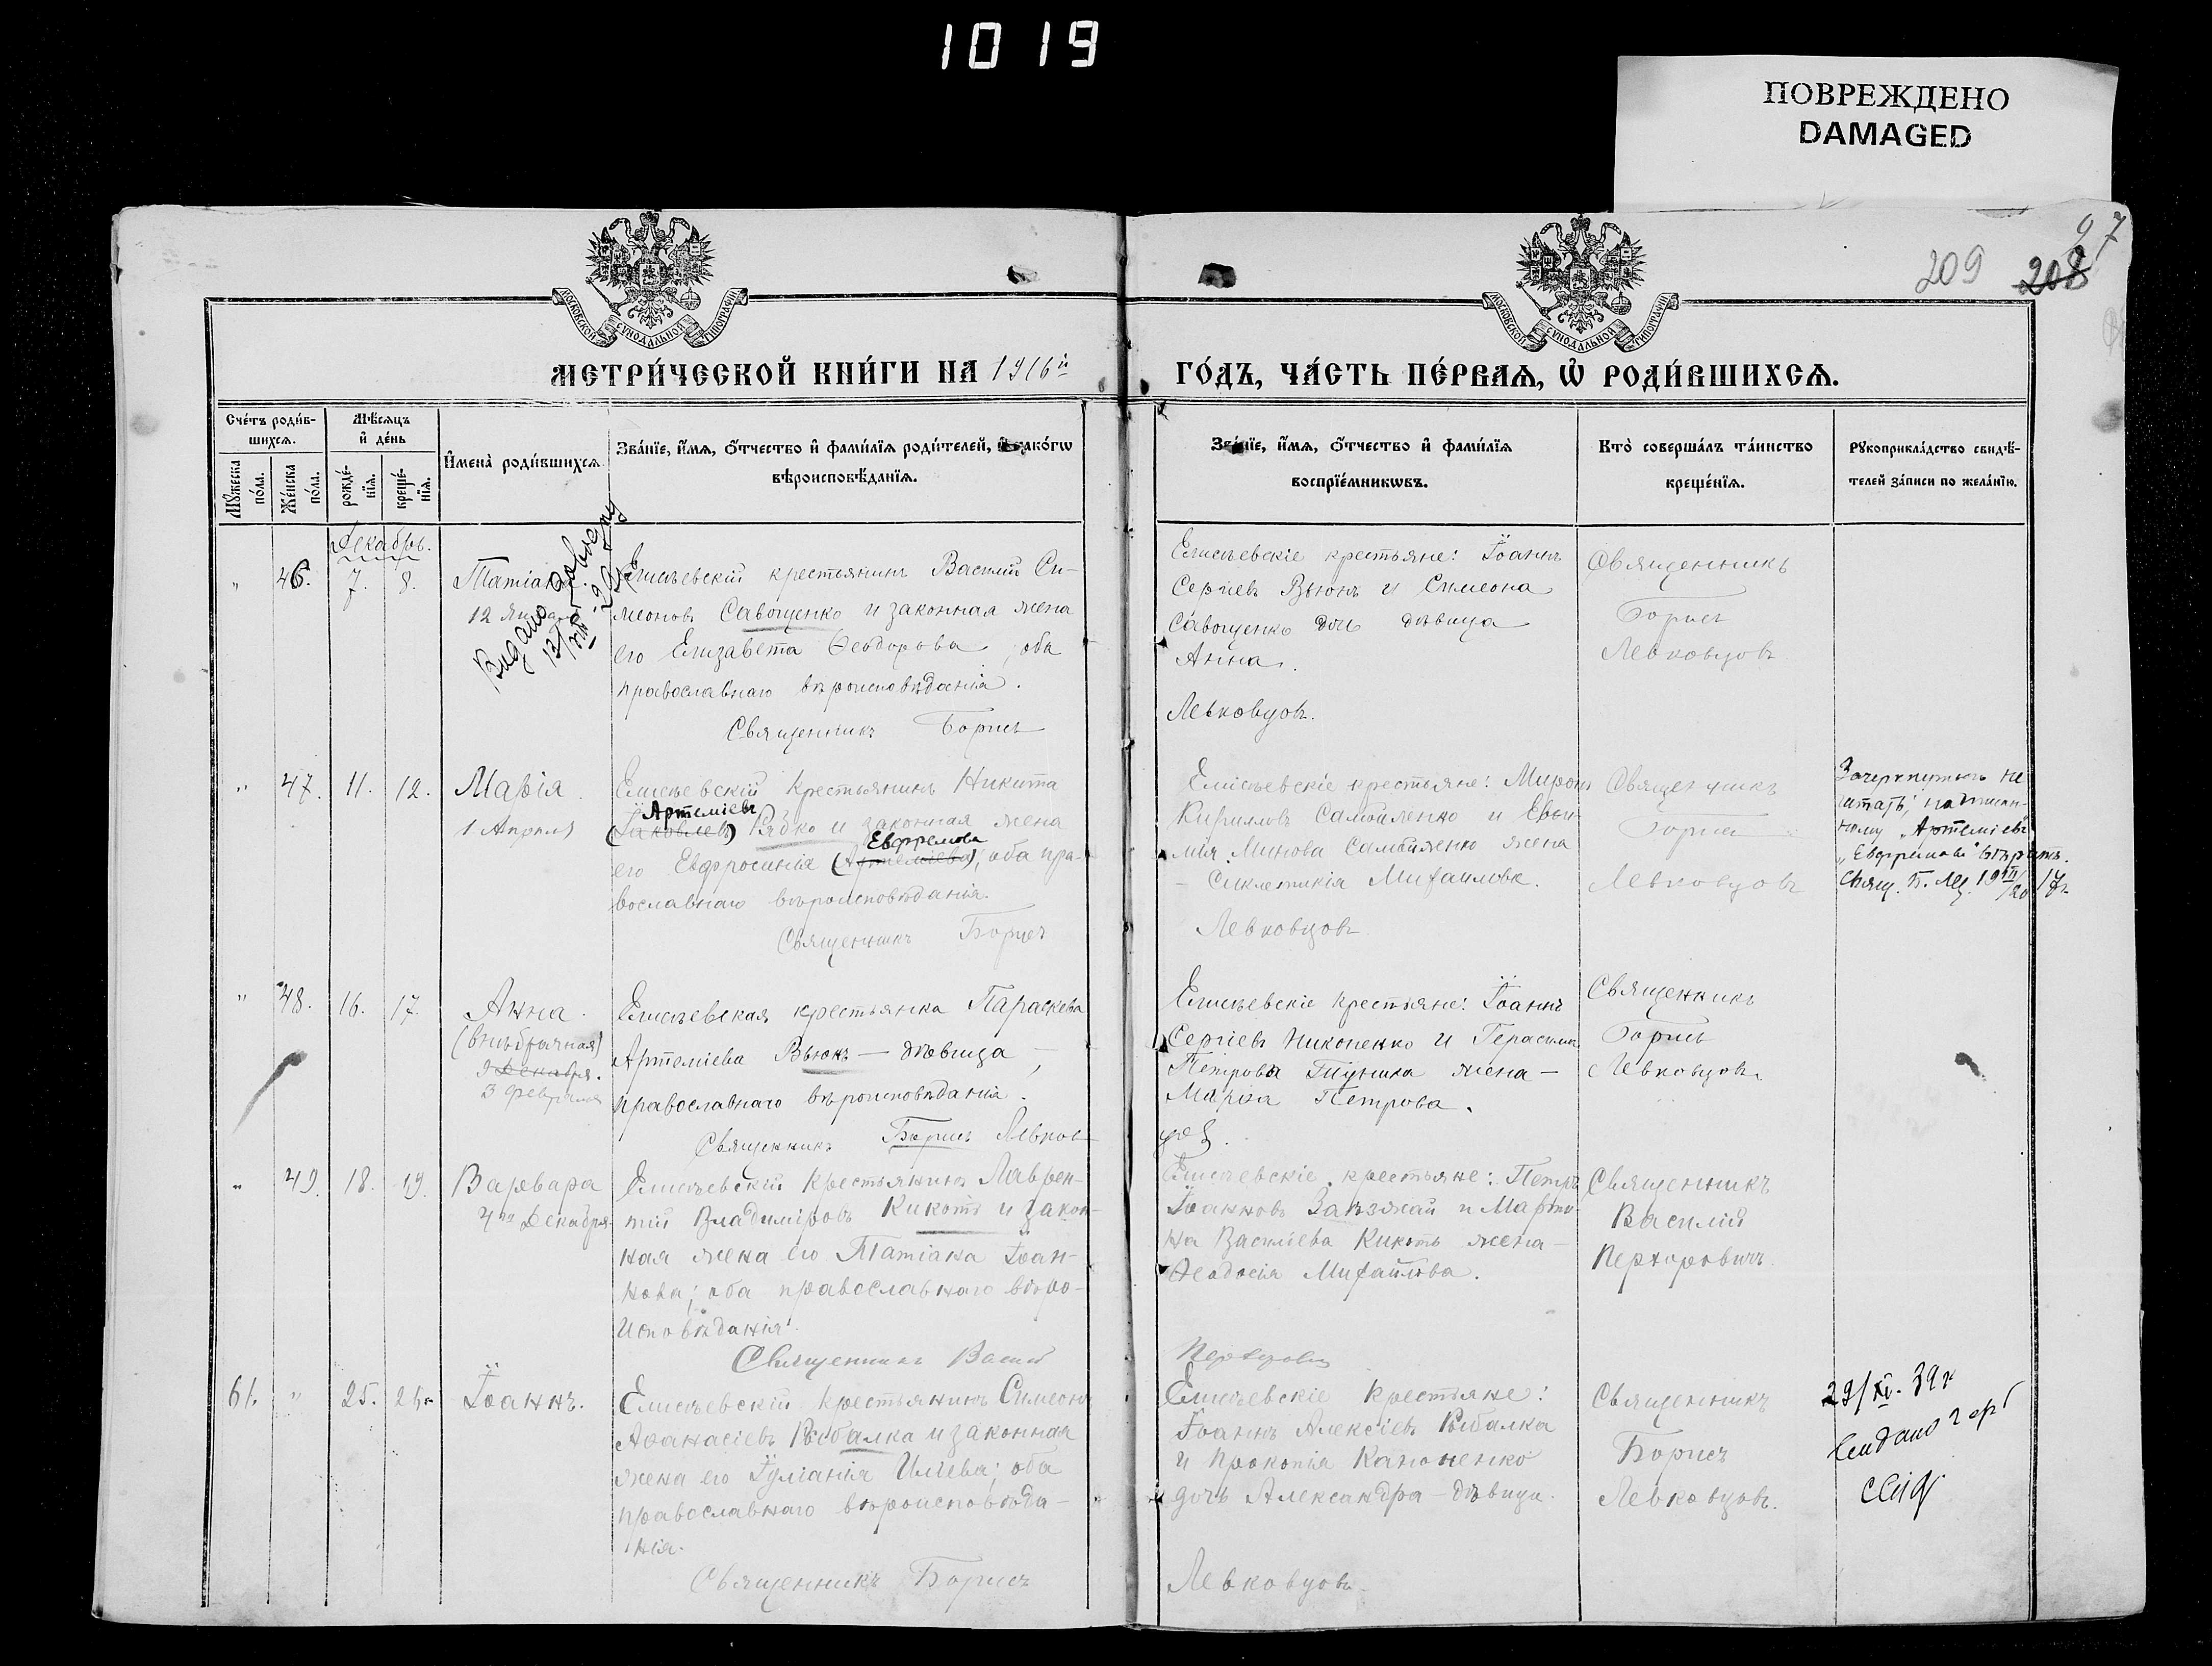 1019
ПОВРЕЖДЕНО
DAMAGED
97
209 208
МОСКОВСКОЙ СѴНОДАЛЬНОЙ ТИПОГРАФІИ
МОСКОВСКОЙ СѴНОДАЛЬНОЙ ТИПОГРАФІИ
МЕТРИ́ЧЕСКОЙ КНИ́ГИ НА 1916й
ГО́ДЪ, ЧА́СТЬ ПЕ́РВАѦ, Ѡ҆ РОДИ́ВШИХСѦ.
Сче́тъ роди́в-
шихсѧ.
Мꙋ́жеска по́ла.
Же́нска по́ла.
Мѣ́сѧцъ
и҆ де́нь
рожде́-
нїѧ.
креще́-
нїѧ.
И҆мена̀ роди́вшихсѧ.
Зва́нїе, и҆́мѧ, ѻ҆́тчество и҆ фами́лїѧ роди́телей, и҆ како́гѡ
вѣроисповѣ́данїѧ.
Зва́нїе, и҆́мѧ, ѻ҆́тчество и҆ фами́лїѧ
воспрїе́мникѡвъ.
Кто̀ соверша́лъ та́инство
креще́нїѧ.
Рꙋкоприкла́дство свидѣ́-
телей за́писи по жела́нїю.
Декабрь.
" 46. 7. 8.
Татіана
12 Января
Видано довідку
Елисѣевскій крестьянинъ Василій Си-
меоновъ Савощенко и законная жена
его Елизавета Ѳеодорова, оба
православнаго вѣроисповѣданія.
Священникъ Борисъ
Елисѣевскіе крестьяне: Іоаннъ
Сергіевъ Вьюнъ и Симеона
Савощенко дочь дѣвица
Анна.
Левковцовъ.
Священникъ
Борисъ
Левковцовъ
" 47. 11. 12.
Марія
1 Апрѣля
Елисѣевскій крестьянинъ Никита
Артеміевъ
(Іаковлевъ) Рябко и законная жена
Евфремова
его Евфросинія (Артеміева); оба пра-
вославнаго вѣроисповѣданія.
Священникъ Борисъ
Елисѣевскіе крестьяне: Миронъ
Кирилловъ Самойленко и Ефи-
мія Минова Самойленко жена
Синклитикія Михаилова.
Левковцовъ
Священникъ
Борисъ
Левковцовъ
Зачеркнутыхъ не
читать; надписан-
ному „Артеміевъ
„Евфремова" вѣрить.
" 48. 16. 17.
Анна.
(внѣбрачная)
9 Декабря.
3 Февраля
Елисѣевская крестьянка Параскева
Артеміева Вьюнъ — дѣвица,
православнаго вѣроисповѣданія.
Священникъ Борисъ Левков-
Елисѣевскіе крестьяне: Іоаннъ
Сергіевъ Никоненко и Герасима
Петрова жена —
Марія Петрова.
цовъ.
Священникъ
Борисъ
Левковцовъ.
" 49. 18. 19.
Варвара
4го Декабря.
Елисѣевскій крестьянинъ Лаврен-
тій Владиміровъ Кикоть и закон-
ная жена его Татіана Іоан-
нова; оба православнаго вѣро-
исповѣданія.
Священникъ Василій
Елисѣевскіе крестьяне: Петръ
Іоанновъ Заѣзжай и Марти-
на Васильева Кикоть жена —
Ѳеодосія Михайлова.
Священникъ
Василій
61. " 25. 26.
Іоаннъ.
Елисѣевскій крестьянинъ Симеонъ
Аѳанасіевъ Рыбалка и законная
жена его Іуліанія Иліева; оба
православнаго вѣроисповѣда-
нія.
Священникъ Борисъ
Елисѣевскіе крестьяне:
Іоаннъ Алексіевъ Рыбалка
и Прокопія Кононенко
дочь Александра — дѣвица.
Левковцовъ.
Священникъ
Борисъ
Левковцовъ.